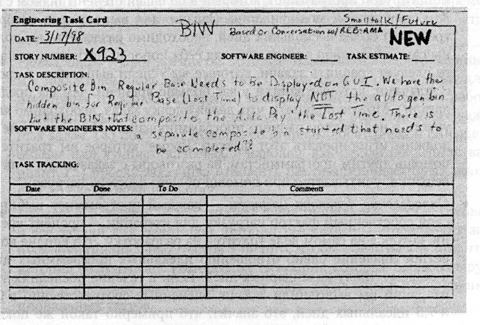 Engineering Task Card
BIW
Smalltalk/Future
Based on Conversation w/ REB:AMA
NEW
DATE: 3/17/98
STORY NUMBER: X923 SOFTWARE ENGINEER: TASK ESTIMATE:
TASK DESCRIPTION:
Composite Bin Regular Base Needs to Be Displayed on GUI. We have the
hidden bin for Regular Base (Lost Time) to display NOT the autogen bin
but the BIN that composits the Auto Pay the Lost Time. There is
SOFTWARE ENGINEER'S NOTES: a separate composite bin started that needs to
be completed??
TASK TRACKING:
Date Done To Do Comments